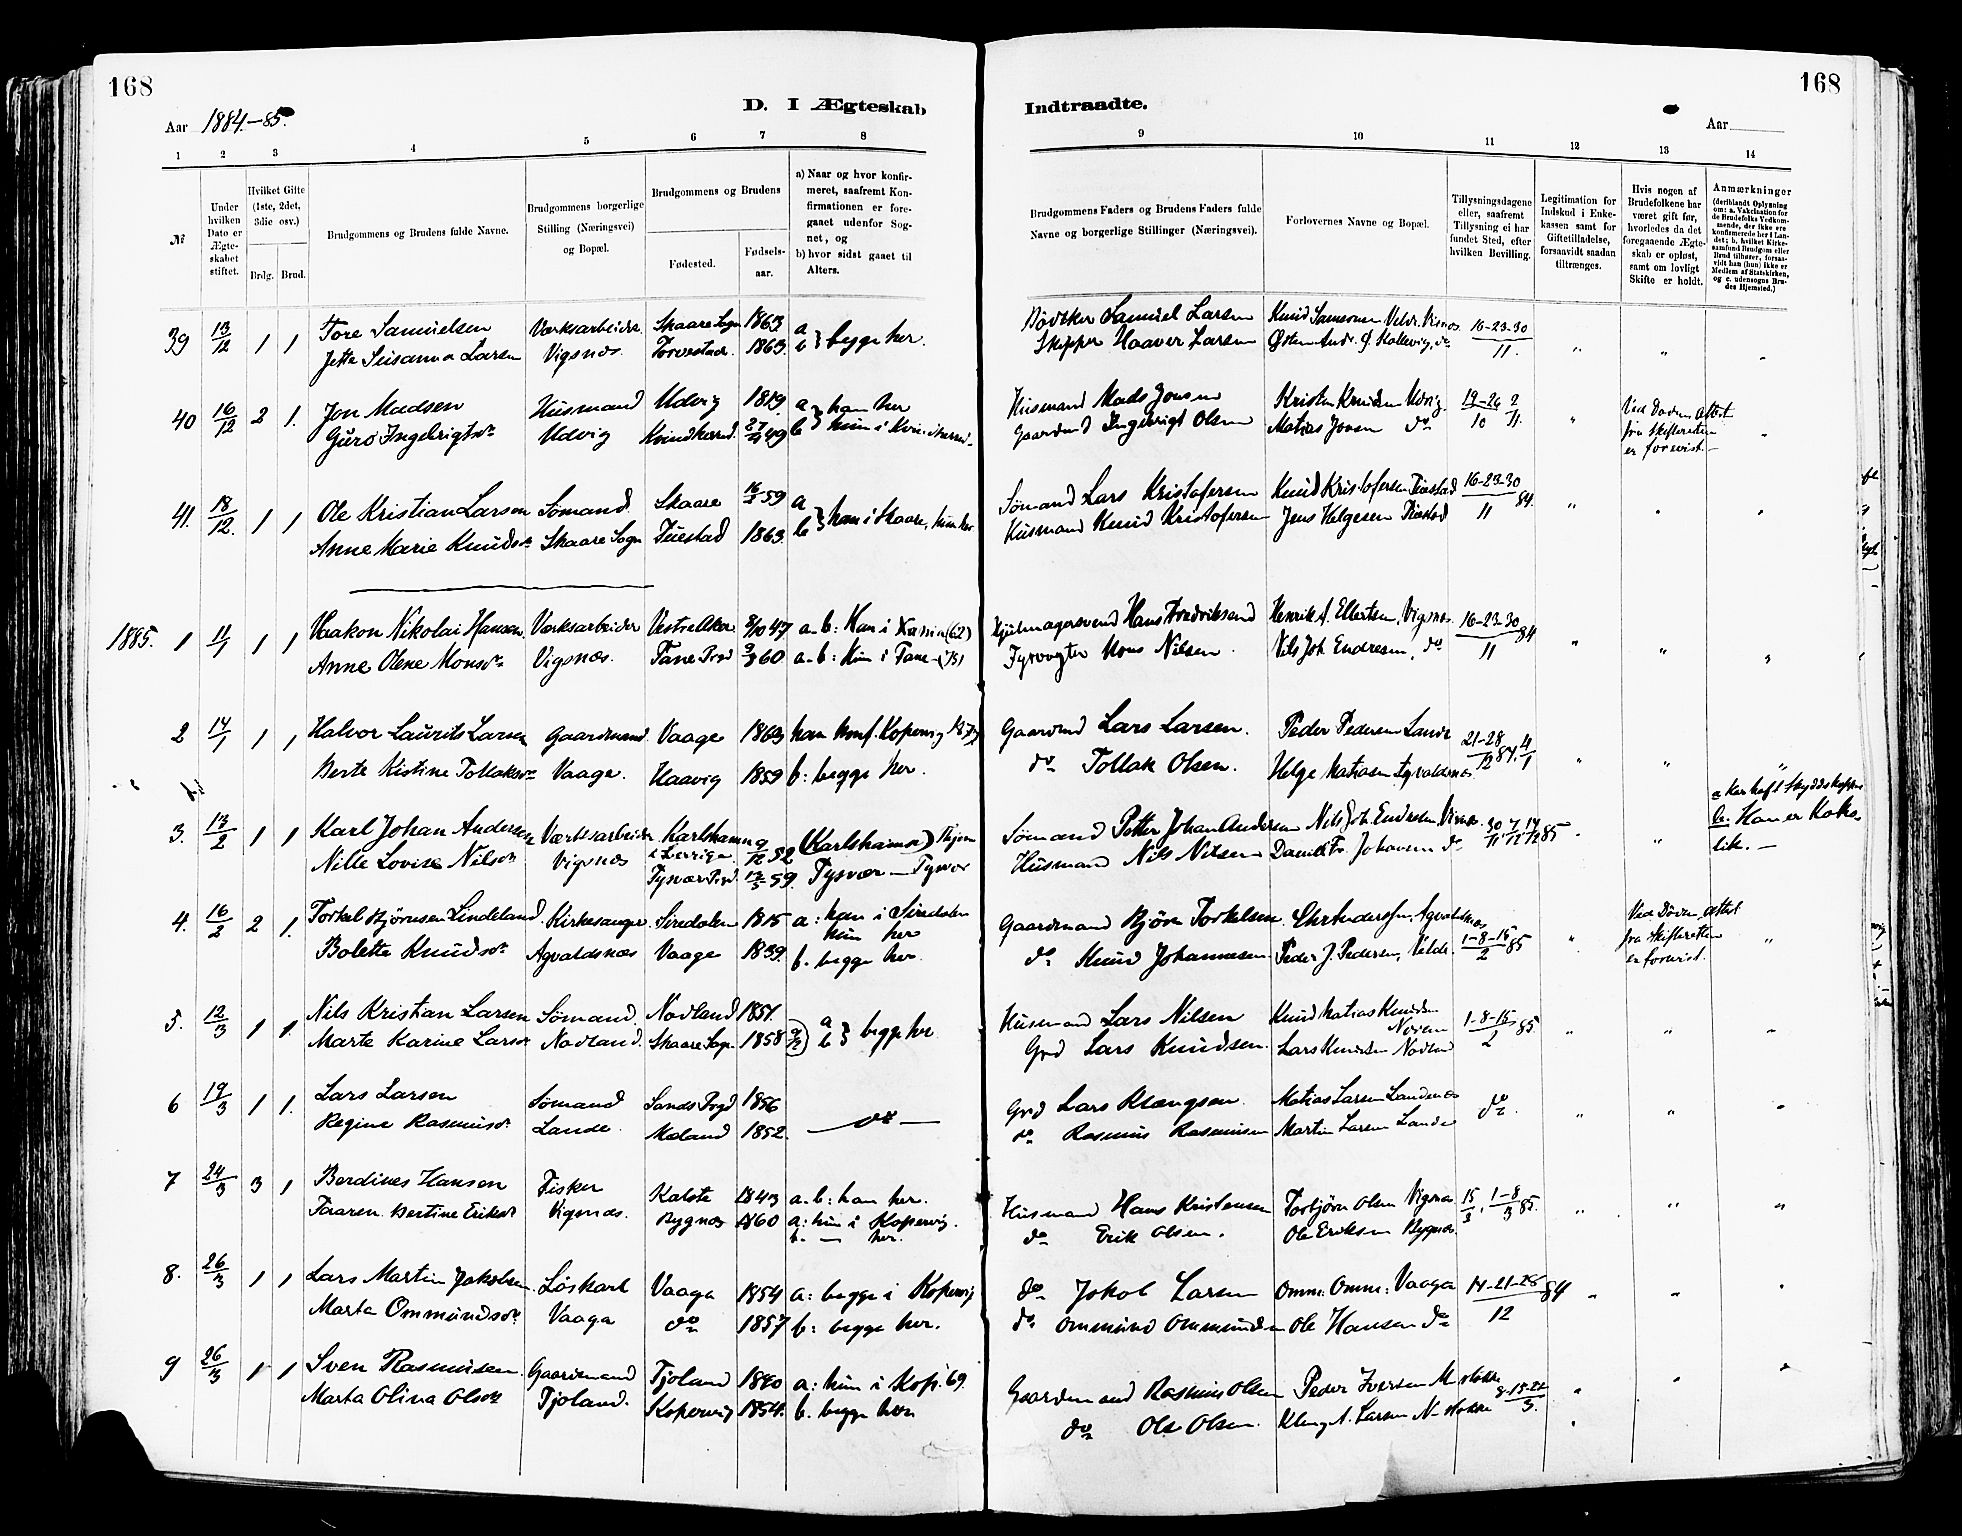 168
168
D. I Ægteskab Indtraadte.
Aar 1884.-85.
Aar
1 2 3 4 5 6 7 8 9 10 11 12 13 14
№
Under hvilken Dato er Ægteskabet stiftet.
Hvilket Gifte (1ste, 2det, 3die osv.)
Brdg. Brud.
Brudgommens og Brudens fulde Navne.
Brudgommens borgerlige Stilling (Næringsvei) og Bopæl.
Brudgommens og Brudens
Fødested. Fødselsaar.
a) Naar og hvor konfirmeret, saafremt Konfirmationen er foregaaet udenfor Sognet, og
b) hvor sidst gaaet til Alters.
Brudgommens Faders og Brudens Faders fulde Navne og borgerlige Stillinger (Næringsvei).
Forlovernes Navne og Bopæl.
Tillysningsdagene eller, saafremt Tillysning ei har fundet Sted, efter hvilken Bevilling.
Legitimation for Indskud i Enkekassen samt for Giftetilladelse, forsaavidt saadan tiltrænges.
Hvis nogen af Brudefolkene har været gift før, hvorledes da det foregaaende Ægteskab er opløst, samt om lovligt Skifte er holdt.
Anmærkninger (deriblandt Oplysning om: a. Vakcination for de Brudefolks Vedkommende, der ikke ere konfirmerede her i Landet; b. hvilket Kirkesamfund Brudgom eller Brud tilhører, forsaavidt han (hun) ikke er Medlem af Statskirken, og c. udensogns Brudes Hjemsted.)
39 13/12 1 1 Tore Samuelsen Værksarbeider Skaare Sogn 1863 a Bødker Samuel Larsen 16-23-30
Jette Susanna Larsen Vigsnæs. Torvestad. 1863. b } begge her. Skipper Haaver Larsen 11.
40 16/12 2 1. Jon Madsen Husmand Udvig 1819. a } han her Husmand Mads Jonsen Kristen Knudsen Udvig 19-26/10 2/11. Ved Døden, Attest
Guro Ingebrigtsdr Udvig 49 b } hun i Ingebrigt Olsen Matias Jonsen do fra Skifteretten
er forevist.
41. 18/12. 1 1 Ole Kristian Larsen Sømand. Skaare 59 a Sømand Lars Kristofersen Knud Kristofersen 16-23-30/11 84.
Anne Marie Knudsdr Skaare Sogn 1863. b } han i Skaare, hun her Husmand Knud Kristofersen Jens Helgesen
1885. 1 11/1 1 1 Haakon Nikolai Hansen Værksarbeider Vestre Aker 8/10 47 a-b: Han i (62) Hans Fredriksend Henrik A. Ellertsen, Vigsnæs 16-23-30/11 84
Anne Olene Monsdr Vigsnæs. Fane Prgd 60 a-b: Hun i Fane Mons Nilsen. Nils Joh. Endresen, do
2 14/1 1 1 Halvor Laurits Larsen Gaardmand. Vaage 1863 han konf. Kopervig Gaardmd Lars Larsen. Peder Pedersen Lande 21-28/12 84. 4/1
Berte Kistine Tollaksdr Vaage. Haavig 1859 b: begge her. do Tollak Olsen. Helge Matiasen
3. 13/2 1 1 Karl Johan Andersen Værksarbeider Karlshamn 52 (Karlshamn) Sømand Petter Johan Andersen Nils Joh. Endresen 85
Nille Lovise Nilsdr Vigsnæs i Sverrige Tysvær Prgd. 59. Tysvær – Tysvær Husmand Nils Nilsen Johansen do b: Han er Katolik.
4. 16/2 2 1. Torkel Bjørnsen Lindeland. Kirkesanger Siredalen 1815 a: han i Siredalen Gaardmand Bjørn Torkelsen Ved Døden, Attest
hun her fra Skifteretten
Bolette Knudsdr Agvaldsnæs Vaage 1859. b. begge her. do Knud Johannesen Peder J. Pedersen, Velde. 1-8-15/2 85 er forevist.
5. 12/3 1 1. Nils Kristian Larsen Sømand. Nodland 1857. a Husmand Lars Nilsen Knud Matias Knudsen 1-8-15/2 85
Marte Karine Larsdr Nodland. Skaare Sogn 1858 b } begge her Grd Lars Knudsen. Lars Knudsen Nodland
6 19/3 1 1. Lars Larsen Sømand Sands Prgd 1856 do Grd Lars Klængsen. Matias Larsen do.
Regine Rasmusdr Lande. Meland 1852. do Rasmus Rasmusen Martin Larsen Lande
7 24/3 3 1 Berdines Hansen Fisker Kalstø 1843 a-b: han her. Husmand Hans Kristensen Torbjørn Olsen Vigsnæs 15/3, 1-8/3 85.
Taaren Bertine Eriksdr Vigsnæs. Bygnæs 1860 a: hun i Kopervig. do Erik Olsen. Ole Eriksen Bygnæs
b. — her.
8. 26/3 1 1 Lars Martin Jakobsen. Løskarl Vaaga 1854 a: begge i Kopervig do Jakob Larsen Omm: Omm: Vaaga 14-21-28/12 84
Marta Ommundsdr. Vaaga do 1857 b: begge her. do Ommund Ommundsen Ole Hansen do
9 26/3 1 1 Sven Rasmusen. Gaardmand Tjoland 1840 a: hun i Kop. 69. Gaardmand Rasmus Olsen Peder Iversen
Marta Olina Olsdr Tjoland. Kopervig 1854. b. begge her do Ole Olsen. Larsen